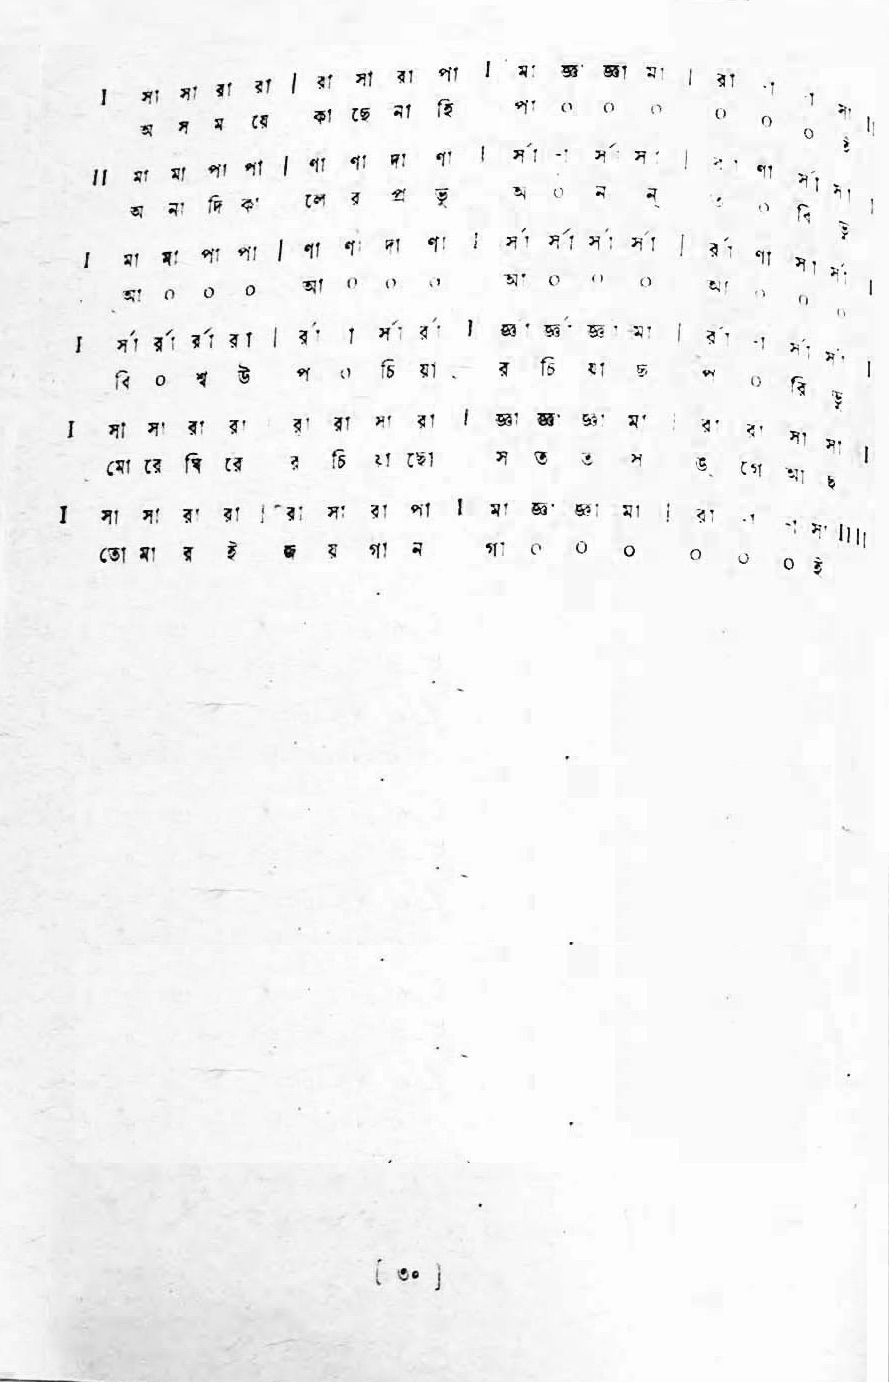 I সা সা রা রা | রা সা রা পা I মা জ্ঞা জ্ঞা মা | রা -া -া সা II
অ স ম য়ে কা ছে না হি পা ০ ০ ০ ০ ০ ০ ই
II মা মা পা পা | ণা ণা দা ণা I র্সা -া র্সা র্সা | ণা র্সা র্সা I
অ না দি কা লে র প্র ভু অ ০ ন ন্ ত ০ বি ভু
I মা মা পা পা | ণা ণা দা ণা I র্সা র্সা র্সা র্সা | র্রা ণা র্সা র্সা I
আ ০ ০ ০ আ ০ ০ ০ আ ০ ০ ০ আ ০ ০ ০
I র্সা র্রা র্রা র্রা | র্রা া র্সা র্রা I র্জ্ঞা র্জ্ঞা র্জ্ঞা র্মা | র্রা -া র্সা র্সা I
বি ০ শ্ব উ প ০ চি য়া র চি য়া ছ প ০ রি ভূ
I সা সা রা রা রা রা সা রা I জ্ঞা জ্ঞা জ্ঞা মা | রা রা সা সা I
মো রে ঘি রে র চি য়া ছো স ত ত স ঙ্ গে আ ছ
I সা সা রা রা | রা সা রা পা I মা জ্ঞা জ্ঞা মা | রা -া -া সা IIII
তো মা র ই জ য় গা ন গা ০ ০ ০ ০ ০ ০ ই
[ ৩০ ]